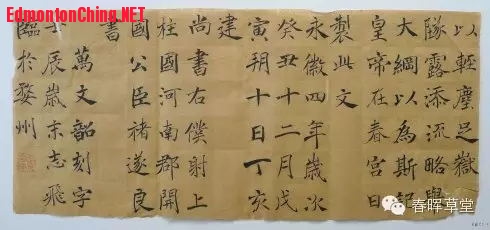 以輕塵足嶽
隊露添流略舉
大綱以為斯記
皇帝在春宮日
製此文
永徽四年歲次
癸丑十二月戊
寅朔十日丁亥
建
尚書右僕射上
柱國河南郡開
國公臣褚遂良
書
萬文韶刻字
辰歲末志飛
臨於婺州
EdmontonChina.NET
春晖草堂